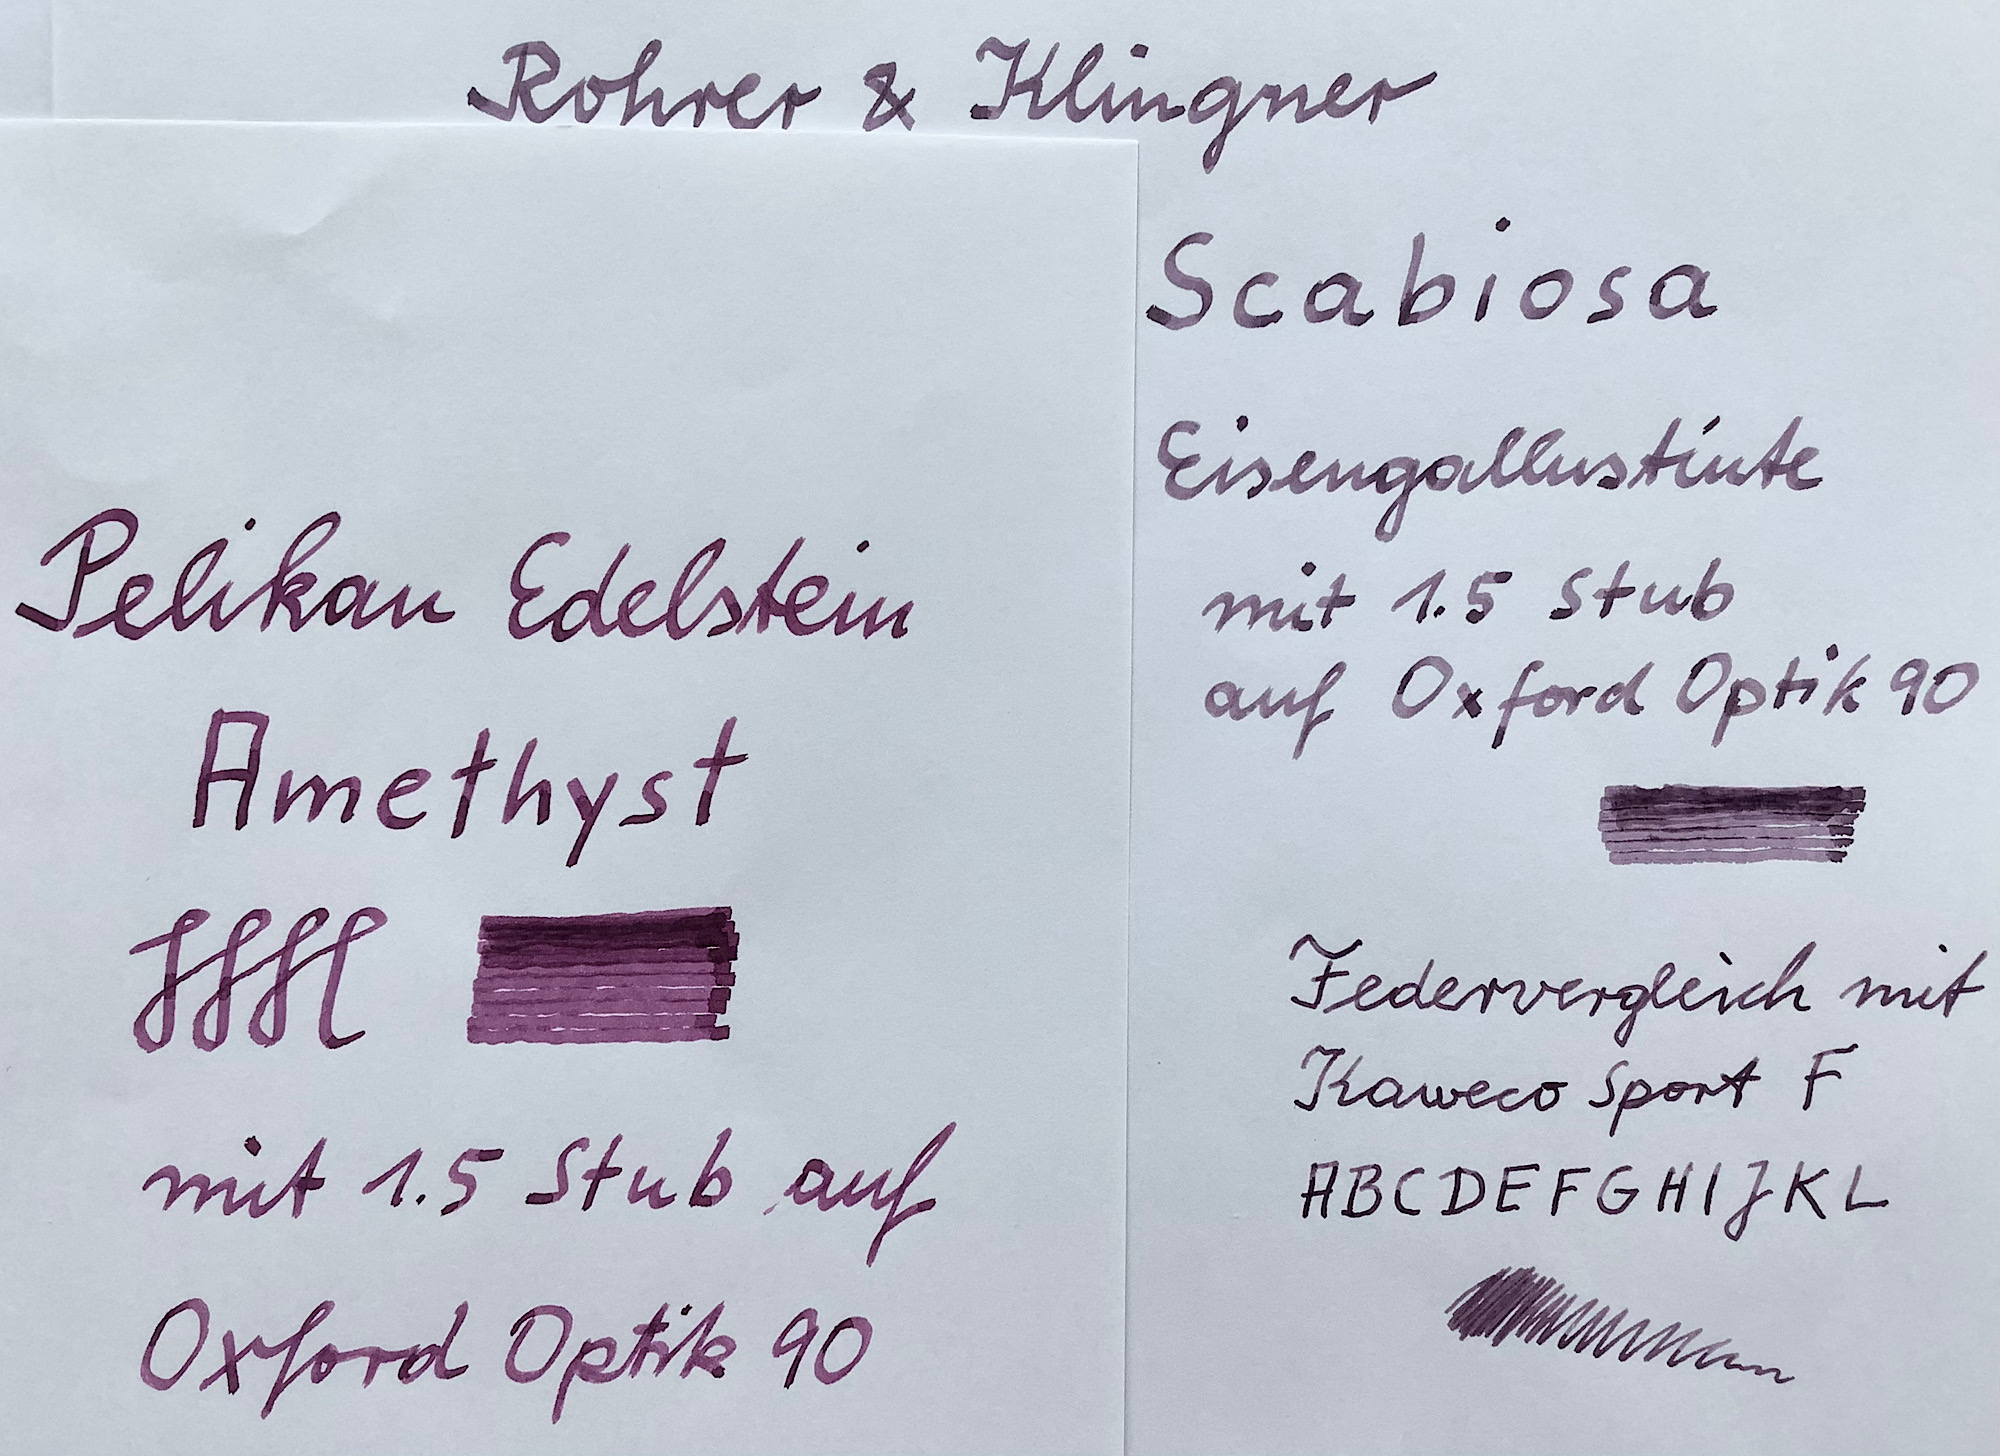 Rohrer & Klingner
Scabiosa
Eisengallustinte
mit 1.5 Stub
auf Oxford Optik 90
Federvergleich mit
Kaweco Sport F
ABCDEFGHIJKL
Pelikan Edelstein
Amethyst
mit 1.5 Stub auf
Oxford Optik 90